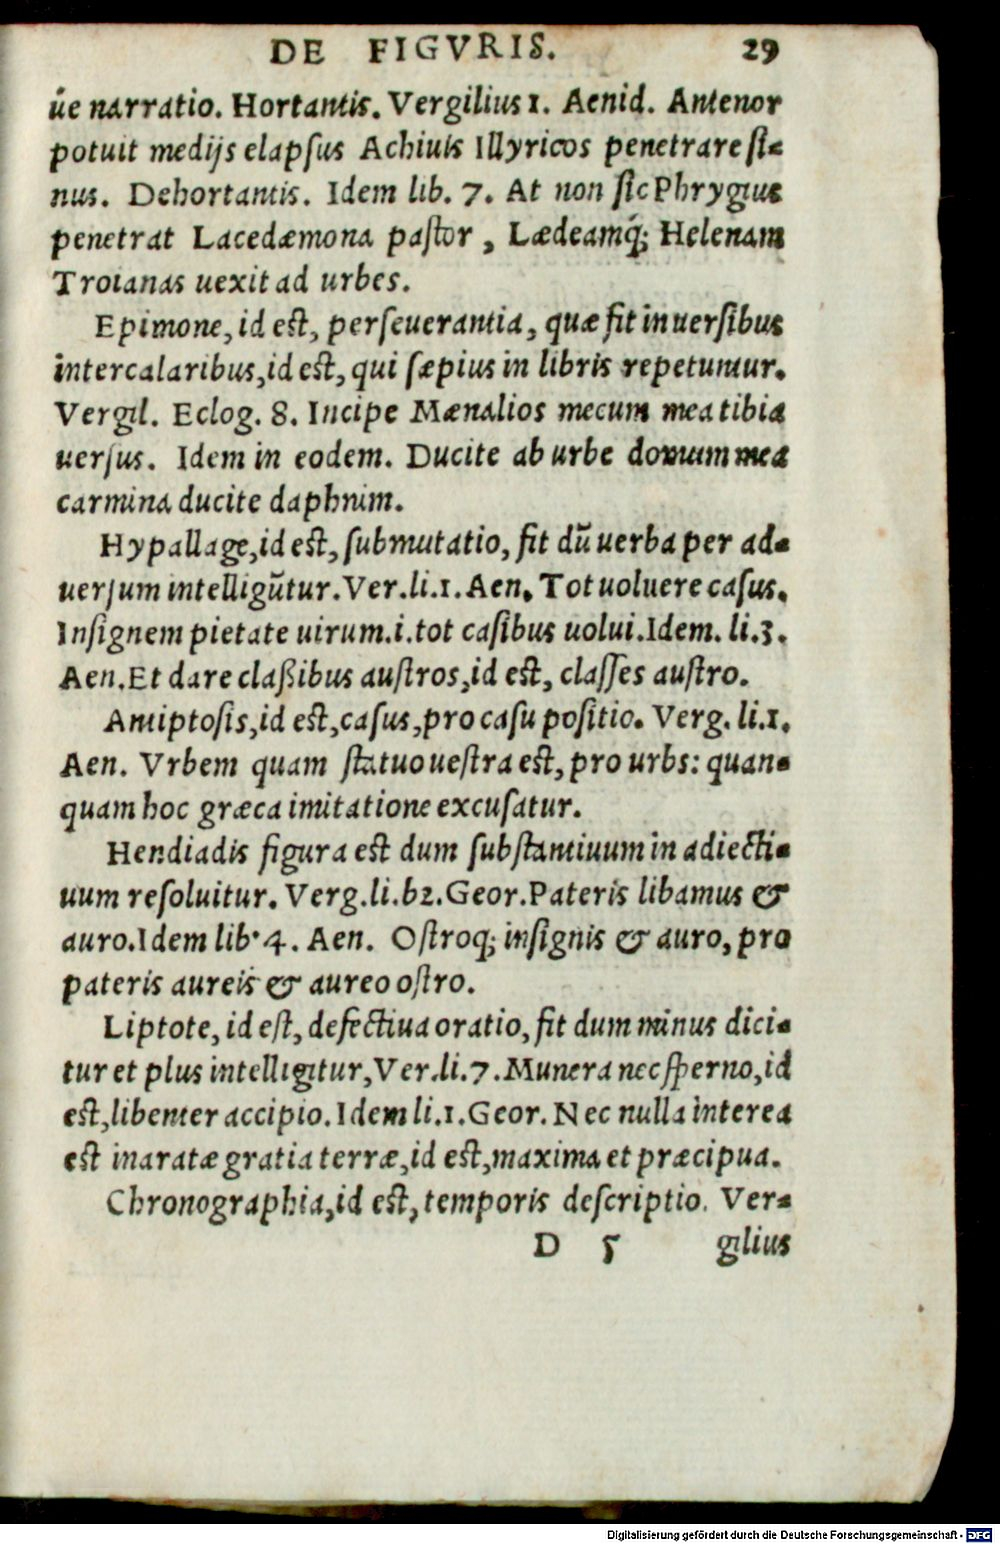 DE FIGVRIS. 29
ûe narratio. Hortantis. Vergilius 1. Aenid. Antenor
potuit medijs elapſus Achiuis Illyricos penetrare ſi-
nus. Dehortantis. Idem lib. 7. At non ſic Phrygius
penetrat Lacedæmona paſtor, Lædeamq́; Helenam
Troianas uexit ad urbes.
Epimone, id eſt, perſeuerantia, quæ fit in uerſibus
intercalaribus, id eſt, qui ſæpius in libris repetuntur.
Vergil. Eclog. 8. Incipe Mænalios mecum mea tibia
uerſus. Idem in eodem. Ducite ab urbe domum mea
carmina ducite daphnim.
Hypallage, id eſt, ſubmutatio, fit dũ uerba per ad-
uerſum intelligũtur. Ver. li. 1. Aen. Tot uoluere caſus.
Inſignem pietate uirum. i. tot caſibus uolui. Idem. li. 3.
Aen. Et dare claßibus auſtros, id eſt, claſſes auſtro.
Antiptoſis, id eſt, caſus, pro caſu poſitio. Verg. li. 1.
Aen. Vrbem quam ſtatuo ueſtra eſt, pro urbs: quan-
quam hoc græca imitatione excuſatur.
Hendiadis figura eſt dum ſubſtantiuum in adiecti-
uum reſoluitur. Verg. li. b2. Geor. Pateris libamus &
auro. Idem lib. 4. Aen. Oſtroq; inſignis & auro, pro
pateris aureis & aureo oſtro.
Liptote, id eſt, defectiua oratio, fit dum minus dici-
tur et plus intelligitur, Ver. li. 7. Munera nec ſperno, id
eſt, libenter accipio. Idem li. 1. Geor. Nec nulla interea
eſt inaratæ gratia terræ, id eſt, maxima et præcipua.
Chronographia, id eſt, temporis deſcriptio. Ver-
D 5 gilius
Digitalisierung gefördert durch die Deutsche Forschungsgemeinschaft - DFG